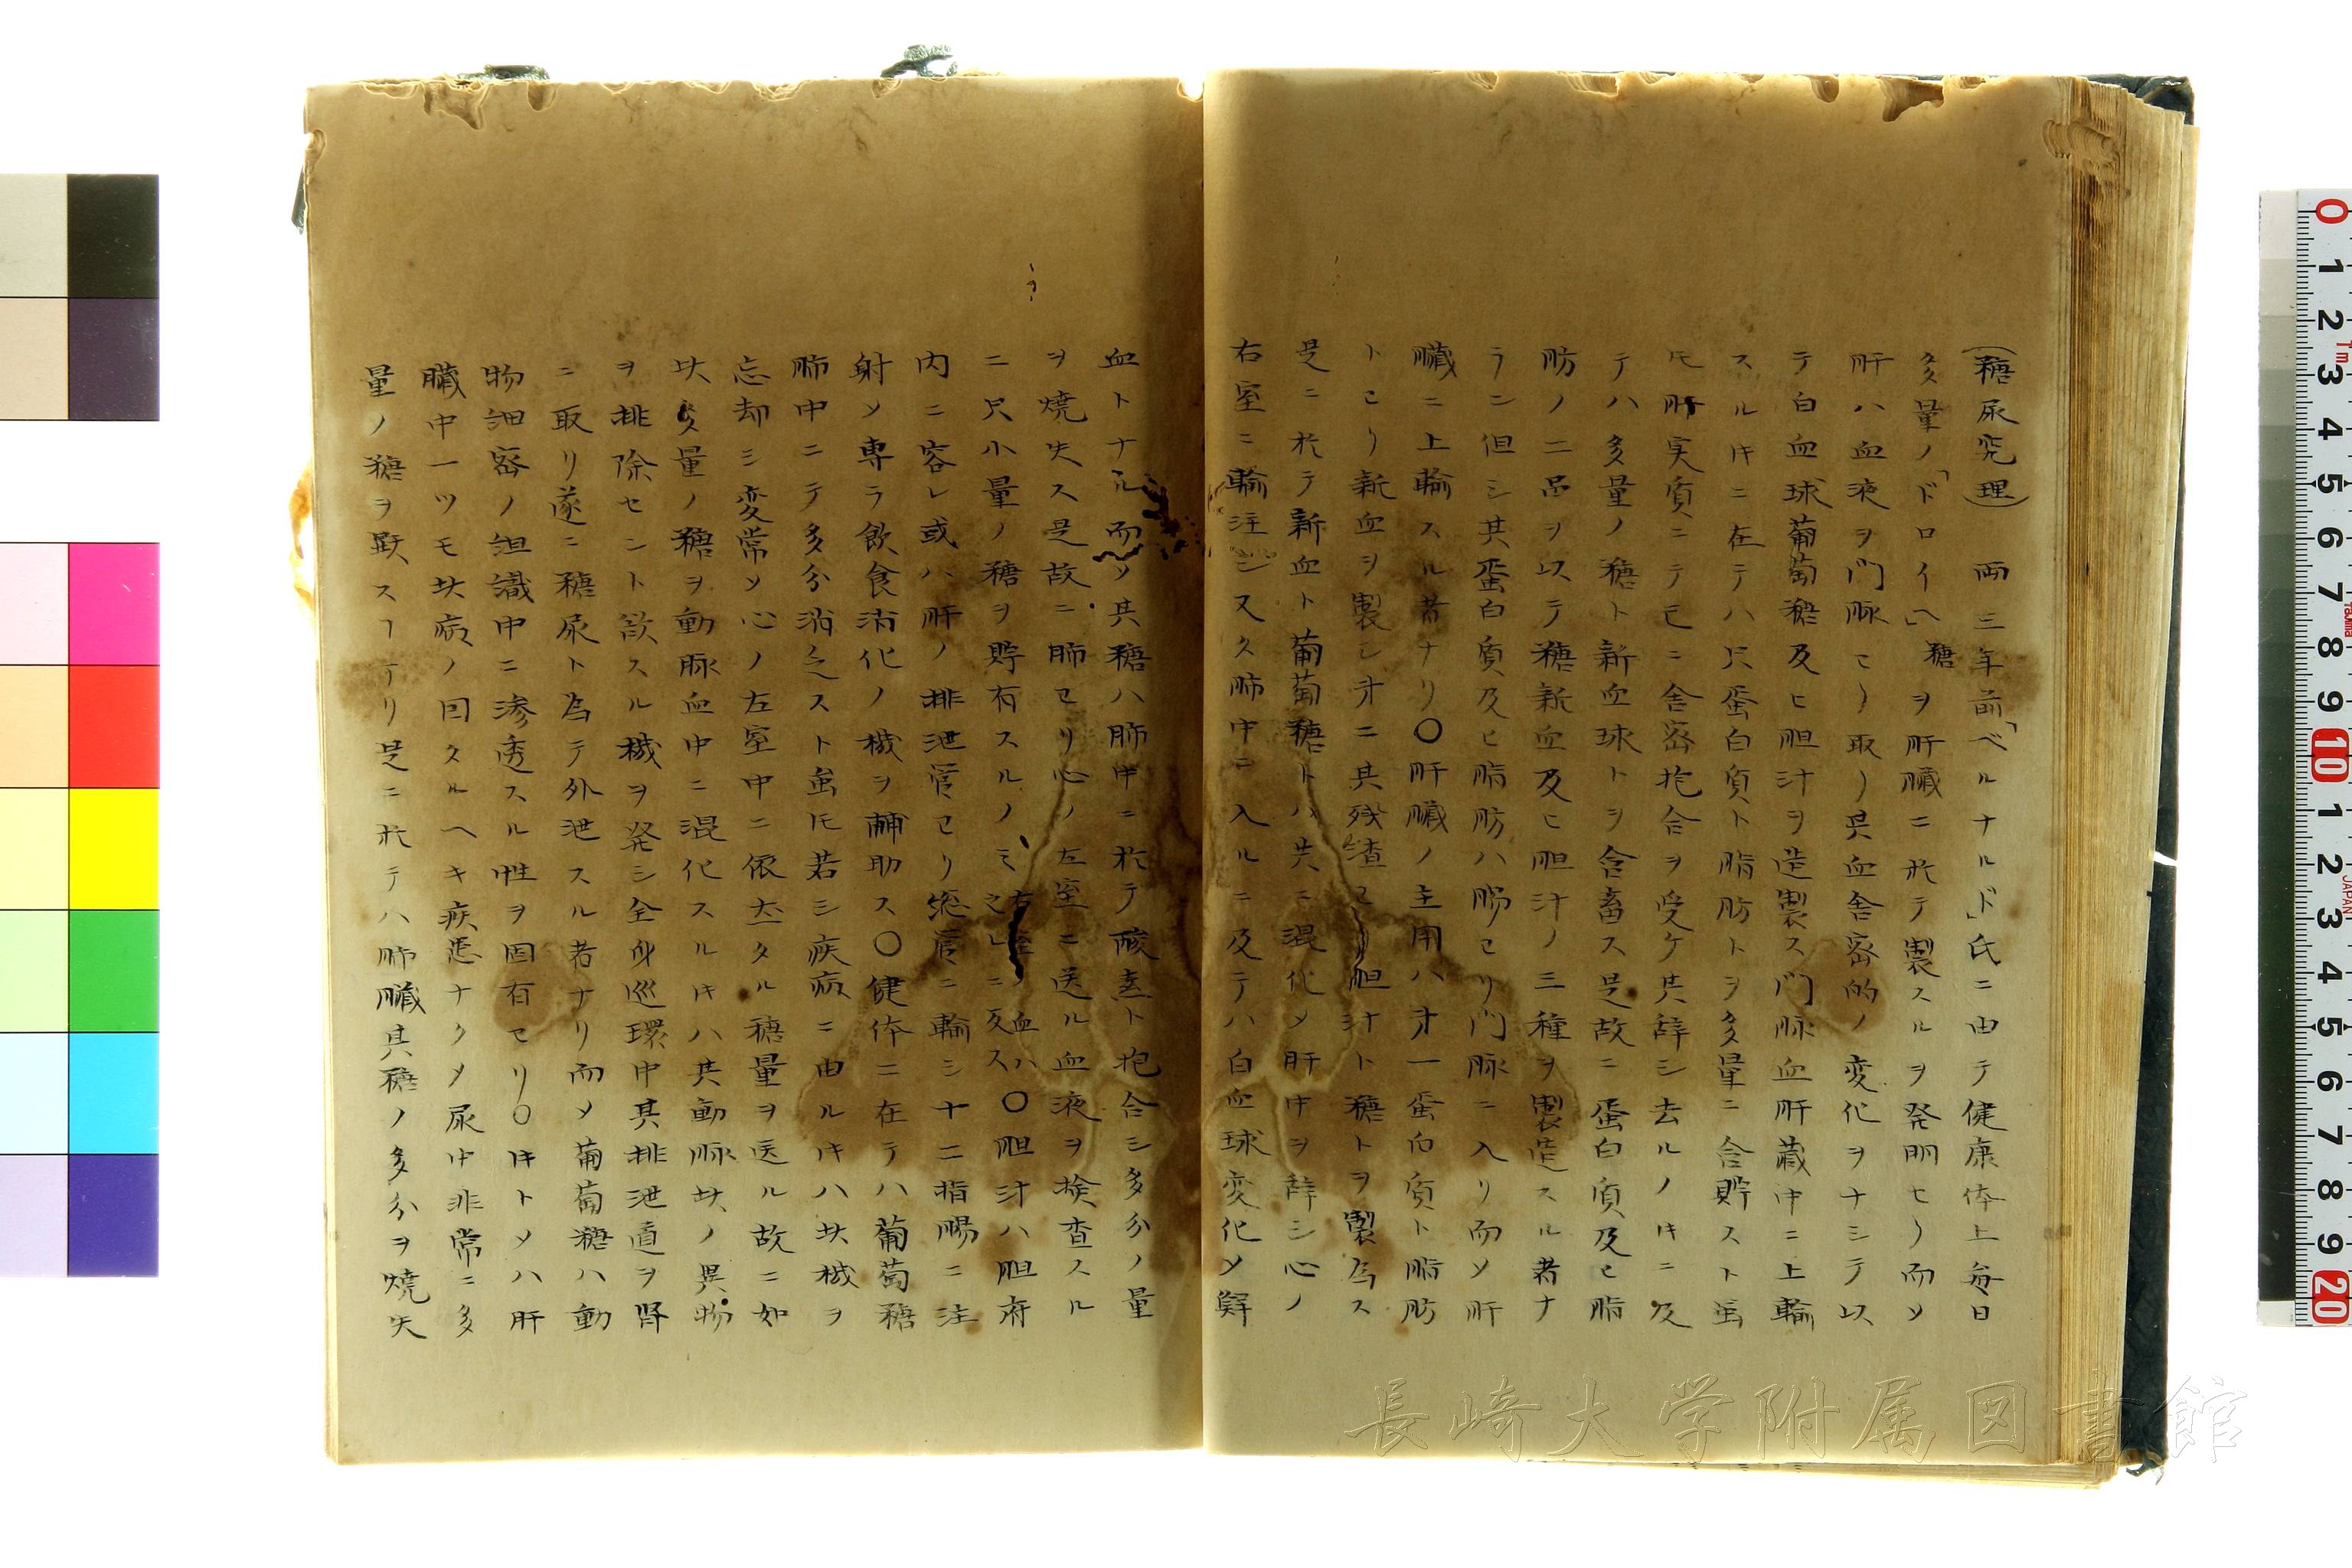 (糖尿究理)　両三年前「ベルナルド」氏ニ由テ健康体上毎日
多量ノ「ドロイヘ」糖ヲ肝臓ニ於テ製スルヲ発明セリ而ソ
肝ハ血液ヲ門脉ヨリ取リ其血舎密的ノ変化ヲナシテ以
テ白血球葡萄糖及ヒ胆汁ヲ造製ス門脉血肝蔵中ニ上輸
スルキニ在テハ只蛋白質ト脂肪トヲ多量ニ含貯スト虽
ヒ肝実質ニテモニ舎密抱合ヲ受ケ其辞シ去ルノキニ及
テハ多量ノ糖ト新血球トヲ含畜ス是故ニ蛋白質及ヒ脂
肪ノ二品ヲ以テ糖新血及ヒ胆汁ノ三種ヲ製造スル者ナ
ラン但シ其蛋白質及ヒ脂肪ハ腸ヨリ門脉ニ入リ而ソ肝
臓ニ上輸スル者ナリ〇肝臓ノ主用ハ才一蛋白質ト脂肪
トヨリ新血ヲ製シ才ニ其残渣ヨリ胆汁ト糖トヲ製為ス
是ニ於テ新血ト葡萄糖トハ共ニ混化メ肝中ヲ辞シ心ノ
右室ニ輸注シ又久肺中ニ入ルニ及テハ白血球変化メ鮮
血トナル而ソ其糖ハ肺中ニ於テ酸素ト抱合シ多分ノ量
ヲ焼失ス是故ニ肺ヨリ心ノ左室ニ送ル血液ヲ検査スル
ニ只小量ノ糖ヲ貯有スルノミ右室ノ血ハ之レニ反ス〇胆汁ハ胆府
内ニ容レ或ハ肝ノ排泄管ヨリ総管ニ輸シ十二指腸ニ注
射メ専ラ飲食消化ノ機ヲ輔助ス〇健体ニ在テハ葡萄糖
肺中ニテ多分消乏スト虽ヒ若シ疾病ニ由ルキハ其機ヲ
忘却シ変常メ心ノ左室中ニ依然タル糖量ヲ送ル故ニ如
此多量ノ糖ヲ動脉血中ニ混化スルキハ其動脉此ノ異物
ヲ排除セント欲スル機ヲ発シ全身巡環中其排泄道ヲ腎
ニ取リ遂ニ糖尿ト為テ外泄スル者ナリ而メ葡萄糖ハ動
物泄密ノ組織中ニ滲透スル性ヲ固有セリ〇キトメハ肝
臓中一ツモ此病ノ因タルヘキ疾患ナクメ尿中非常ニ多
量ノ糖ヲ顕スアリ是ニ於テハ肺臓其糖ノ多分ヲ焼失
長崎大学附属図書館